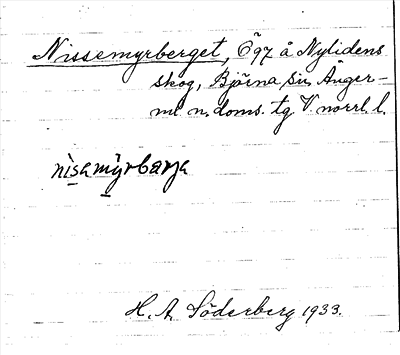 Nissemyrberget, Ögz å Nylidens
skog, Björna sn, Ånger-
ml. n. doms. tg. V. norrl. l.
nìsamýrbærja
H. A. Söderberg 1933.